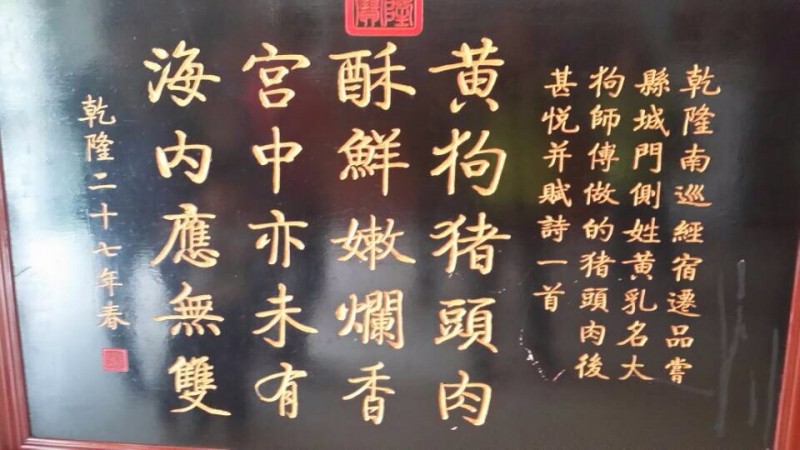 乾隆南巡經宿遷品嘗
縣城門側姓黃乳名大
狗師傅做的猪頭肉後
甚悦并賦詩一首
黄狗猪頭肉
酥鮮嫩爛香
宮中亦未有
海内應無雙
乾隆二十七年春